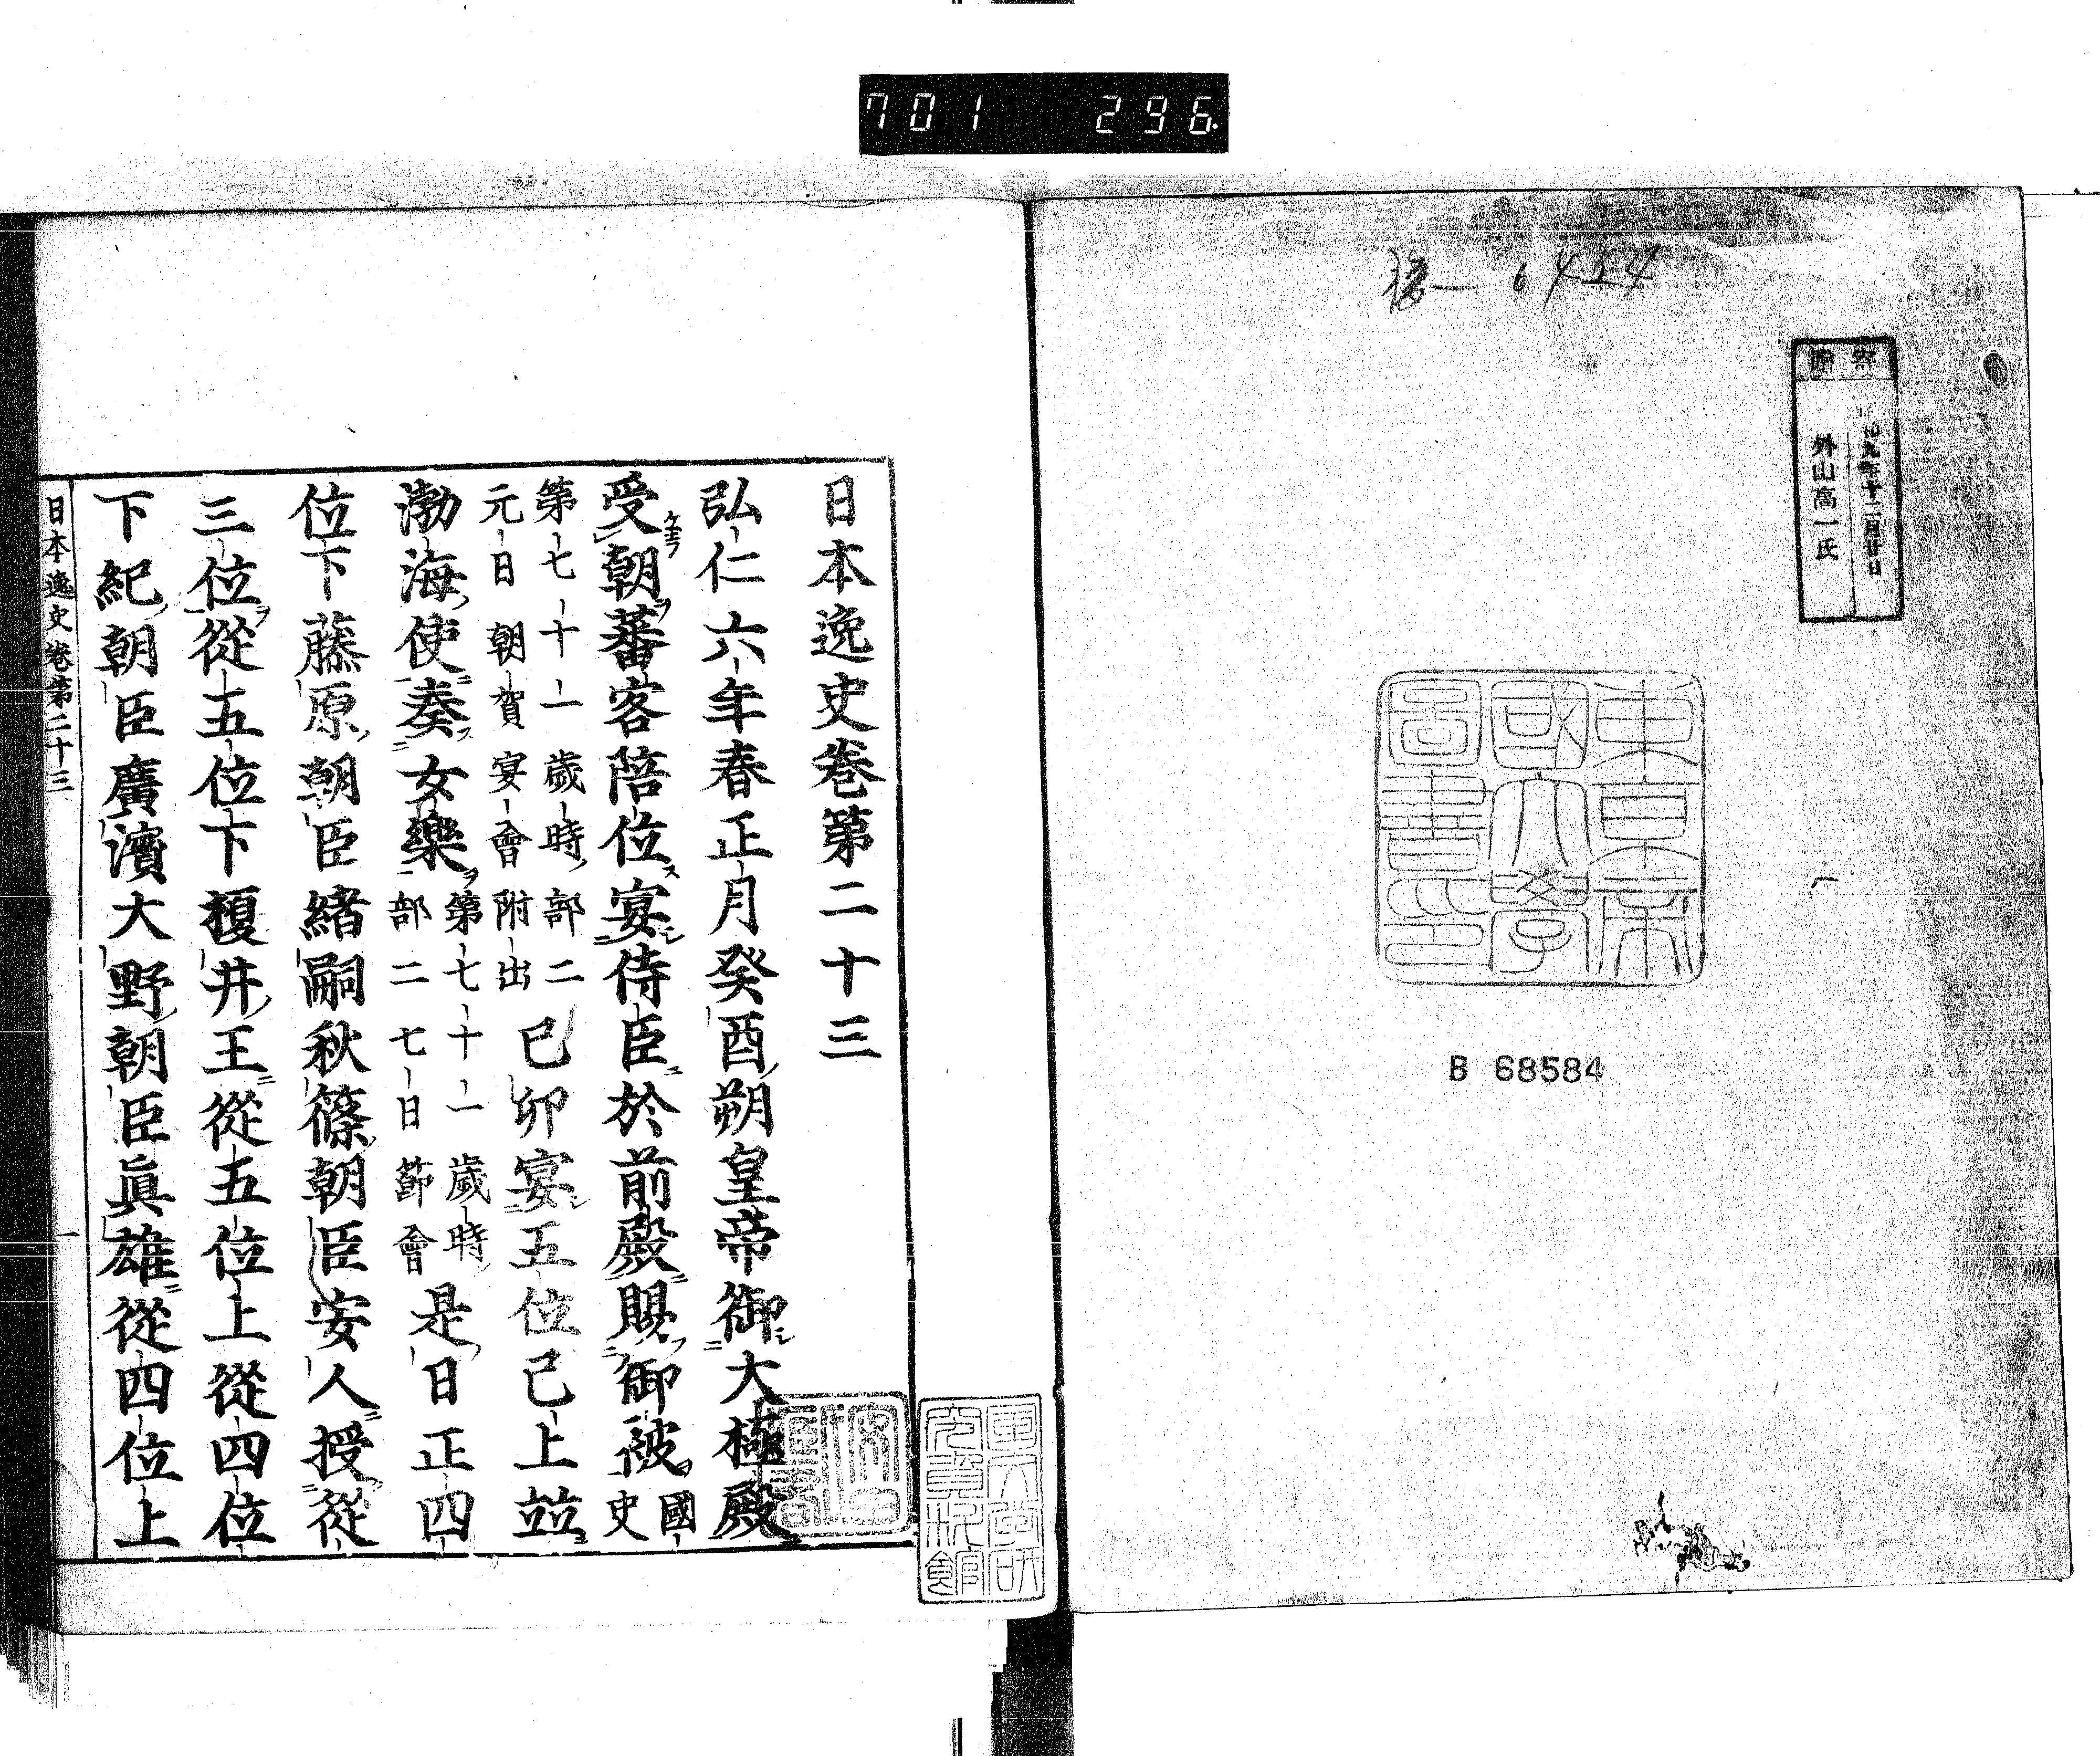 701 296
6424
寄贈
外山高一氏
東京帝
國大學
圖書印
B 68584
日本逸史卷第二十三
弘仁六年春正月癸酉朔皇帝御大極殿
受朝蕃客陪位宴侍臣於前殿賜御被國史
第七十一歲時部二
元日朝賀宴會附出
己卯宴五位已上竝
渤海使奏女樂
第七十一歲時
部二七日節會
是日正四
位下藤原朝臣緒嗣秋篠朝臣安人授從
三位從五位下榎井王從五位上從四位
下紀朝臣廣濱大野朝臣眞雄從四位上
日本逸史卷第二十三 一